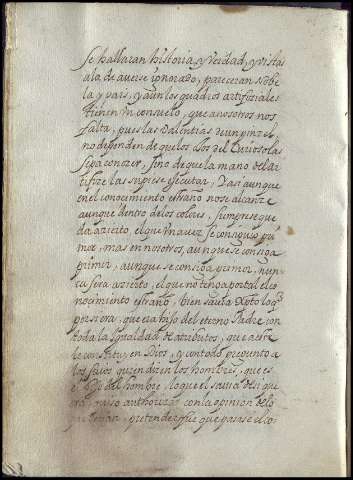 se hallaran historia, y verdad, y vista
ala de averse ignorado, pareceran nobe
la y pais, y aun los quadros artifiziales
tienen un consuelo, que a nosotros nos
falta, pues las valentias de un pinzel,
no dependen de que los ojos del curioso las
sepa conozer, sino de que la mano del Ar
tifize las supiese ejecutar, y asi aunque
en el conocimiento estraño no se alcanze
aunque dentro de los colores, siempre que
da azierto, el que una vez se consiguio pri
mor, mas en nosotros, aunque se consiga
primor, aunque se consiga primor, nun
ca sera azierto, el que no tenga portal el co
nocimiento estraño, bien savia Xpto
por si era, que era hijo del eterno Padre con
toda la igualdad de atributos, que a este
le constituy en Dios, y con todo pregunto a
los suyos quien dizen los hombres, que es
el hijo del hombre, lo que el savia de si que
era, quiso authorizar con la opinion de lo
que pretendiese que pasase el co